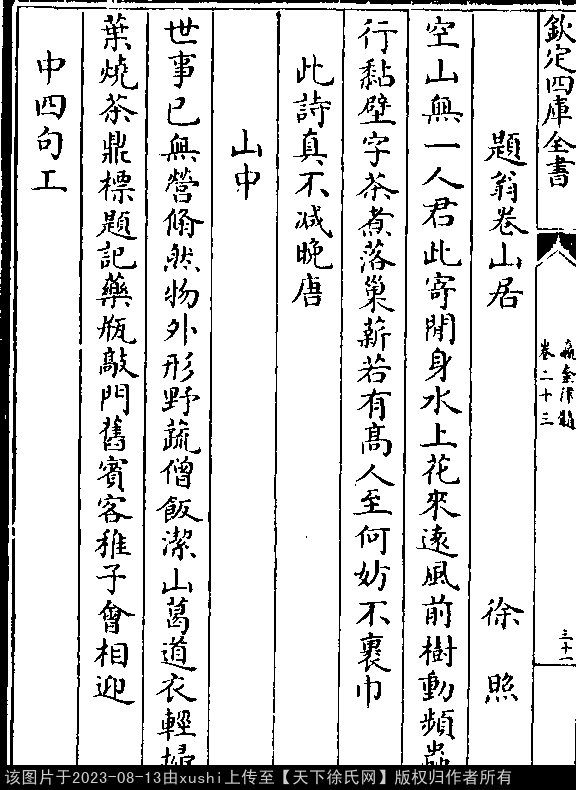 欽定四庫全書
瀛奎律髓
卷二十三
三十一
題翁卷山居
徐照
空山無一人君此寄閒身水上花來逺風前樹動頻蟲
行黏壁字茶煮落巢薪若有髙人至何妨不裹巾
此詩真不减晚唐
山中
世事已無營翛然物外形野蔬僧飯潔山葛道衣輕掃
葉燒茶鼎標題記藥瓶敲門舊賓客稚子會相迎
中四句工
该图片于2023-08-13由xushi上传至【天下徐氏网】版权归作者所有